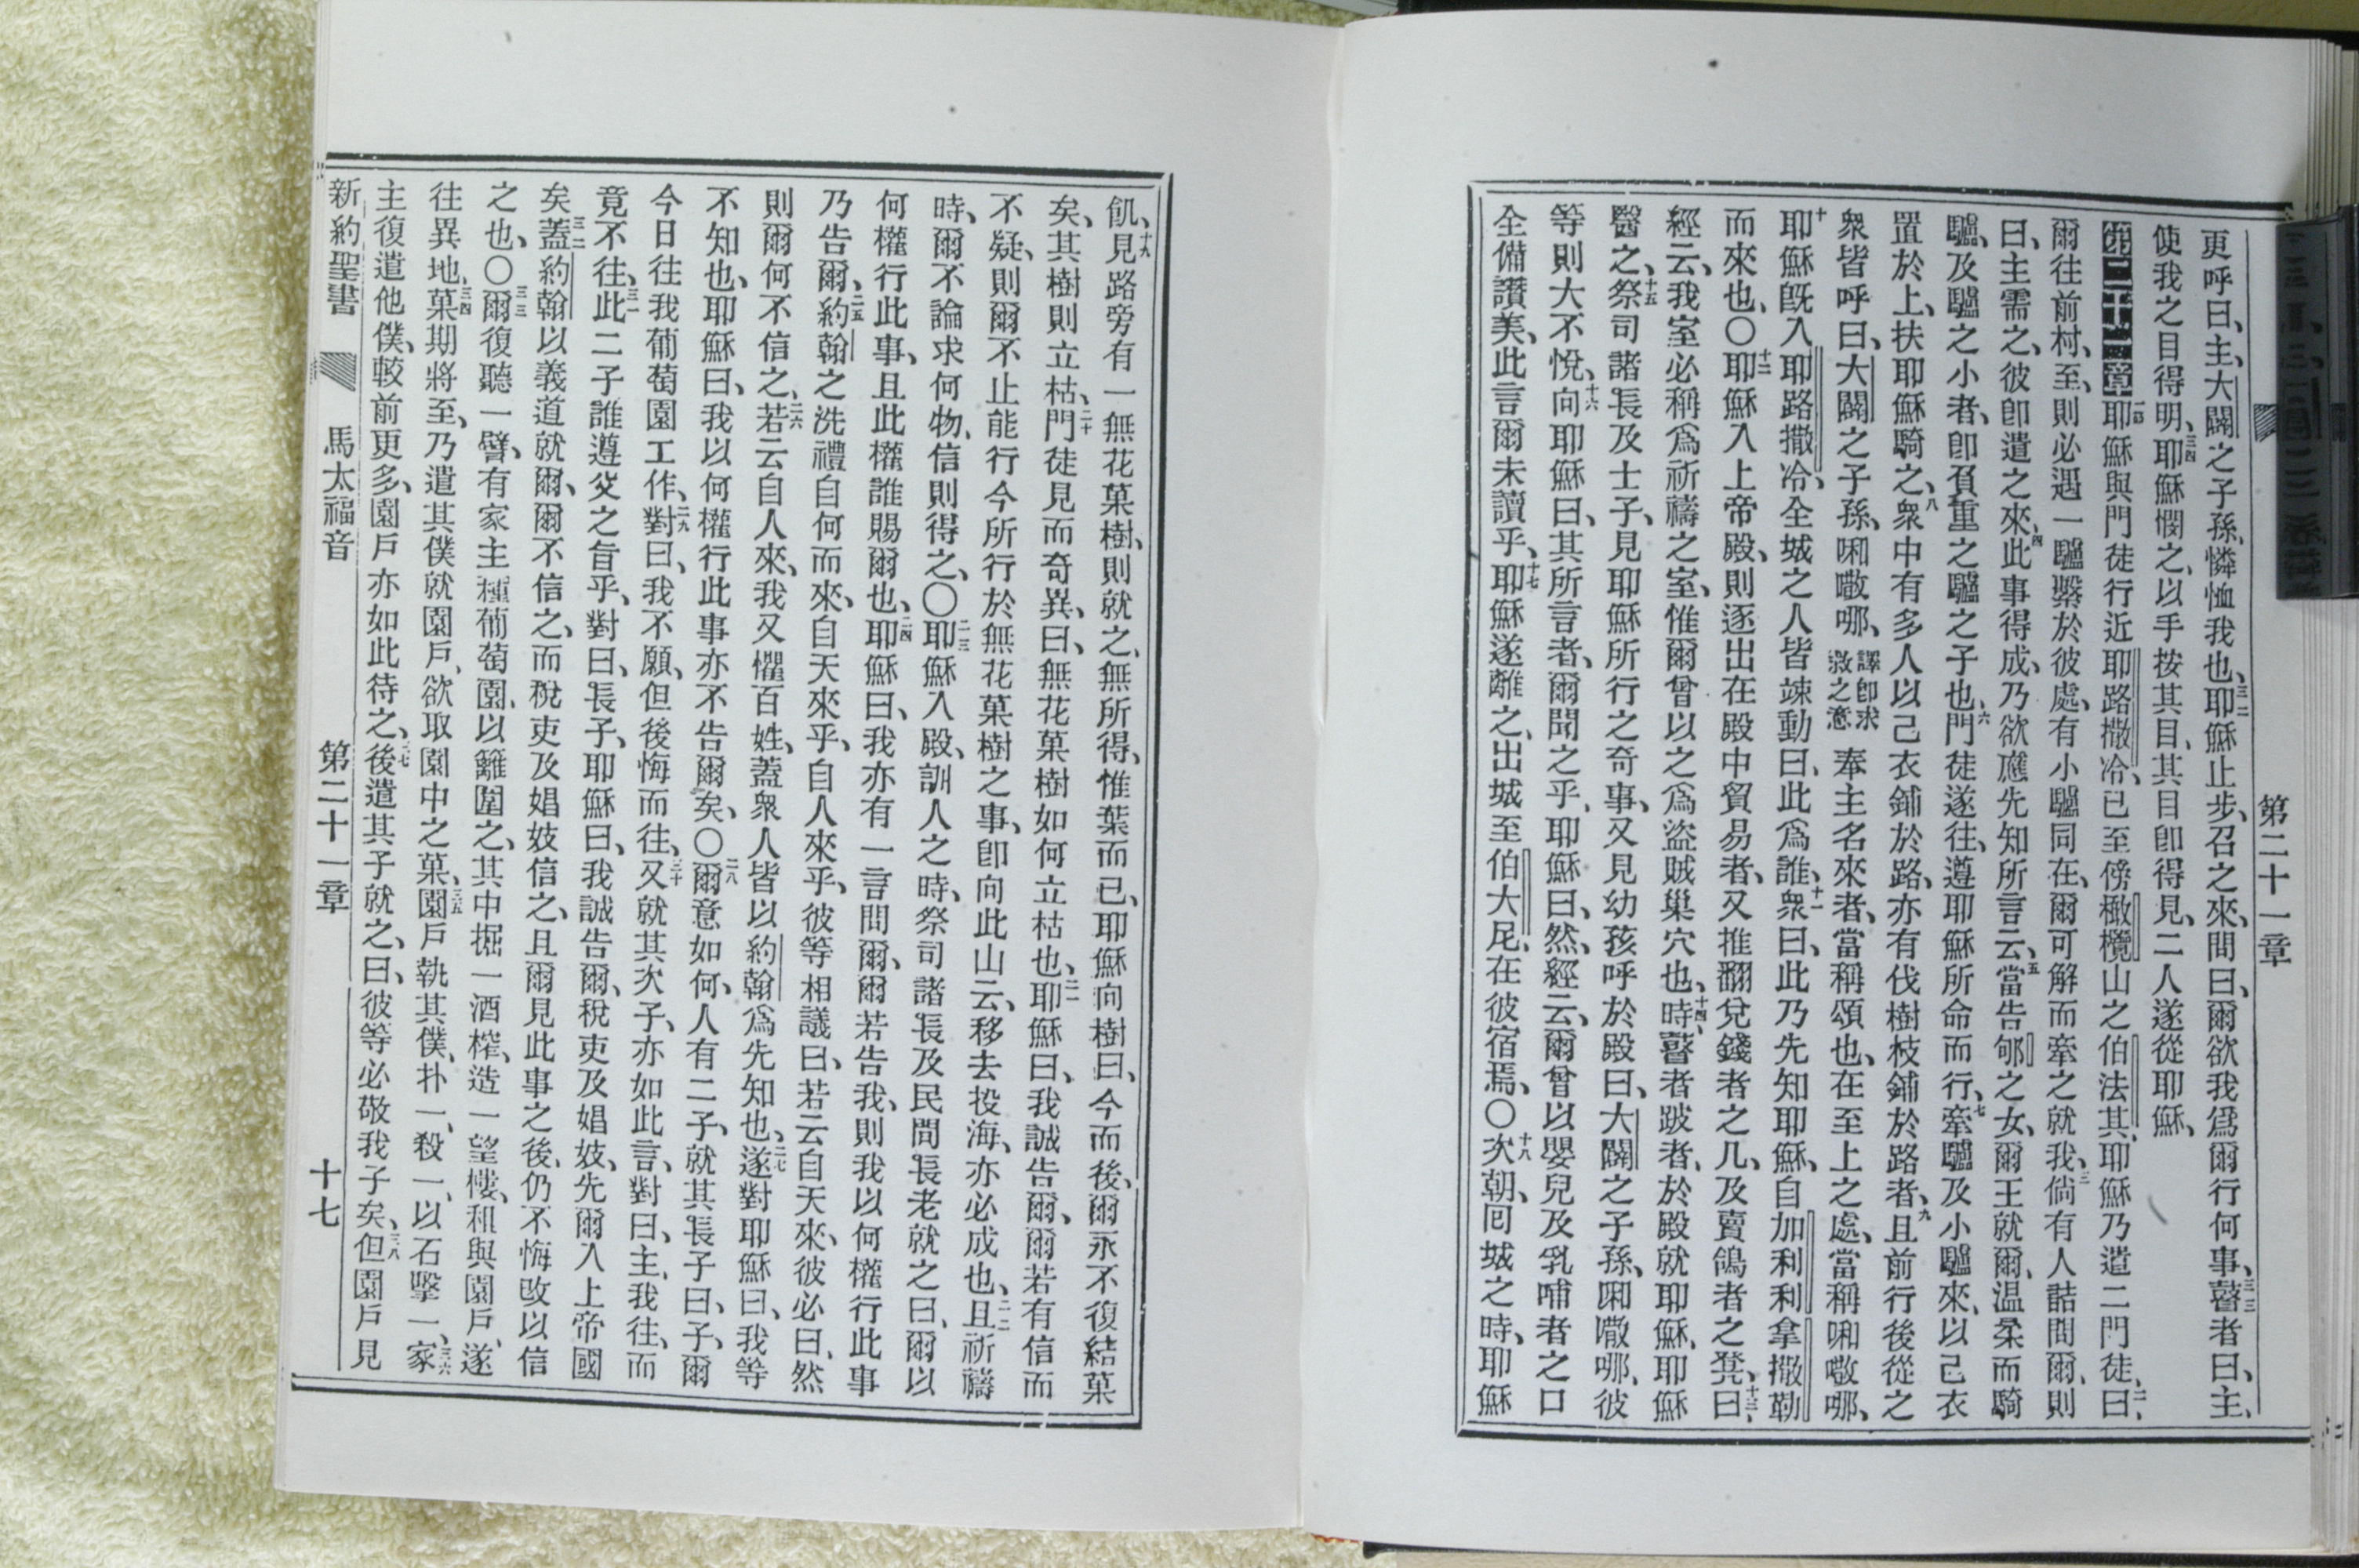 第二十一章
更呼曰、主、大闢之子孫、憐恤我也、三二耶穌止步、召之來、問曰、爾欲我爲爾行何事、三三瞽者曰、主、
使我之目得明、三四耶穌憫之、以手按其目、其目卽得見、二人遂從耶穌、
第二十一章一耶穌與門徒行近耶路撒冷、已至傍橄欖山之伯法其、耶穌乃遣二門徒、二曰、
爾往前村、至、則必遇一驢繫於彼處、有小驢同在、爾可解而牽之就我、三倘有人詰問爾、則
曰、主需之、彼卽遣之來、四此事得成、乃欲應先知所言云、五當告郇之女、爾王就爾、温柔而騎
驢、及驢之小者、卽負重之驢之子也、六門徒遂往、遵耶穌所命而行、七牽驢及小驢來、以己衣
置於上、扶耶穌騎之、八衆中有多人以己衣鋪於路、亦有伐樹枝鋪於路者、九且前行後從之
衆皆呼曰、大闢之子孫、㗆㗫哪、譯卽求救之意奉主名來者、當稱頌也、在至上之處、當稱㗆㗫哪、
十耶穌旣入耶路撒冷、全城之人皆竦動曰、此爲誰、十一衆曰、此乃先知耶穌、自加利利拿撒勒
而來也、〇十二耶穌入上帝殿、則逐出在殿中貿易者、又推翻兌錢者之几、及賣鴿者之凳、十三曰、
經云、我室必稱爲祈禱之室、惟爾曾以之爲盜賊巢穴也、十四時、瞽者跛者、於殿就耶穌、耶穌
醫之、十五祭司諸長及士子、見耶穌所行之奇事、又見幼孩呼於殿曰、大闢之子孫、㗆㗫哪、彼
等則大不悅、十六向耶穌曰、其所言者、爾聞之乎、耶穌曰、然、經云、爾曾以嬰兒及乳哺者之口
全備讚美、此言爾未讀乎、十七耶穌遂離之、出城至伯大尼、在彼宿焉、〇十八次朝、囘城之時、耶穌
飢、十九見路旁有一無花菓樹、則就之、無所得、惟葉而已、耶穌向樹曰、今而後、爾永不復結菓
矣、其樹則立枯、二十門徒見而奇異、曰、無花菓樹如何立枯也、二一耶穌曰、我誠告爾、爾若有信而
不疑、則爾不止能行今所行於無花菓樹之事、卽向此山云、移去投海、亦必成也、二二且祈禱
時、爾不論求何物、信則得之、〇二三耶穌入殿、訓人之時、祭司諸長及民間長老就之曰、爾以
何權行此事、且此權誰賜爾也、二四耶穌曰、我亦有一言問爾、爾若告我、則我以何權行此事
乃告爾、二五約翰之洗禮自何而來、自天來乎、自人來乎、彼等相議曰、若云自天來、彼必曰、然
則爾何不信之、二六若云自人來、我又懼百姓、蓋衆人皆以約翰爲先知也、二七遂對耶穌曰、我等
不知也、耶穌曰、我以何權行此事亦不告爾矣、〇二八爾意如何、人有二子、就其長子曰、子、爾
今日往我葡萄園工作、二九對曰、我不願、但後悔而往、三十又就其次子、亦如此言、對曰、主、我往、而
竟不往、三一此二子誰遵父之旨乎、對曰、長子、耶穌曰、我誠告爾、稅吏及娼妓、先爾入上帝國
矣、三二蓋約翰以義道就爾、爾不信之、而稅吏及娼妓信之、且爾見此事之後、仍不悔改以信
之也、〇三三爾復聽一譬、有家主種葡萄園、以籬圍之、其中掘一酒榨、造一望樓、租與園戶、遂
往異地、三四菓期將至、乃遣其僕就園戶、欲取園中之菓、三五園戶執其僕、扑一、殺一、以石擊一、三六家
主復遣他僕、較前更多、園戶亦如此待之、三七後遣其子就之、曰、彼等必敬我子矣、三八但園戶見
新約聖書 馬太福音 第二十一章 十七